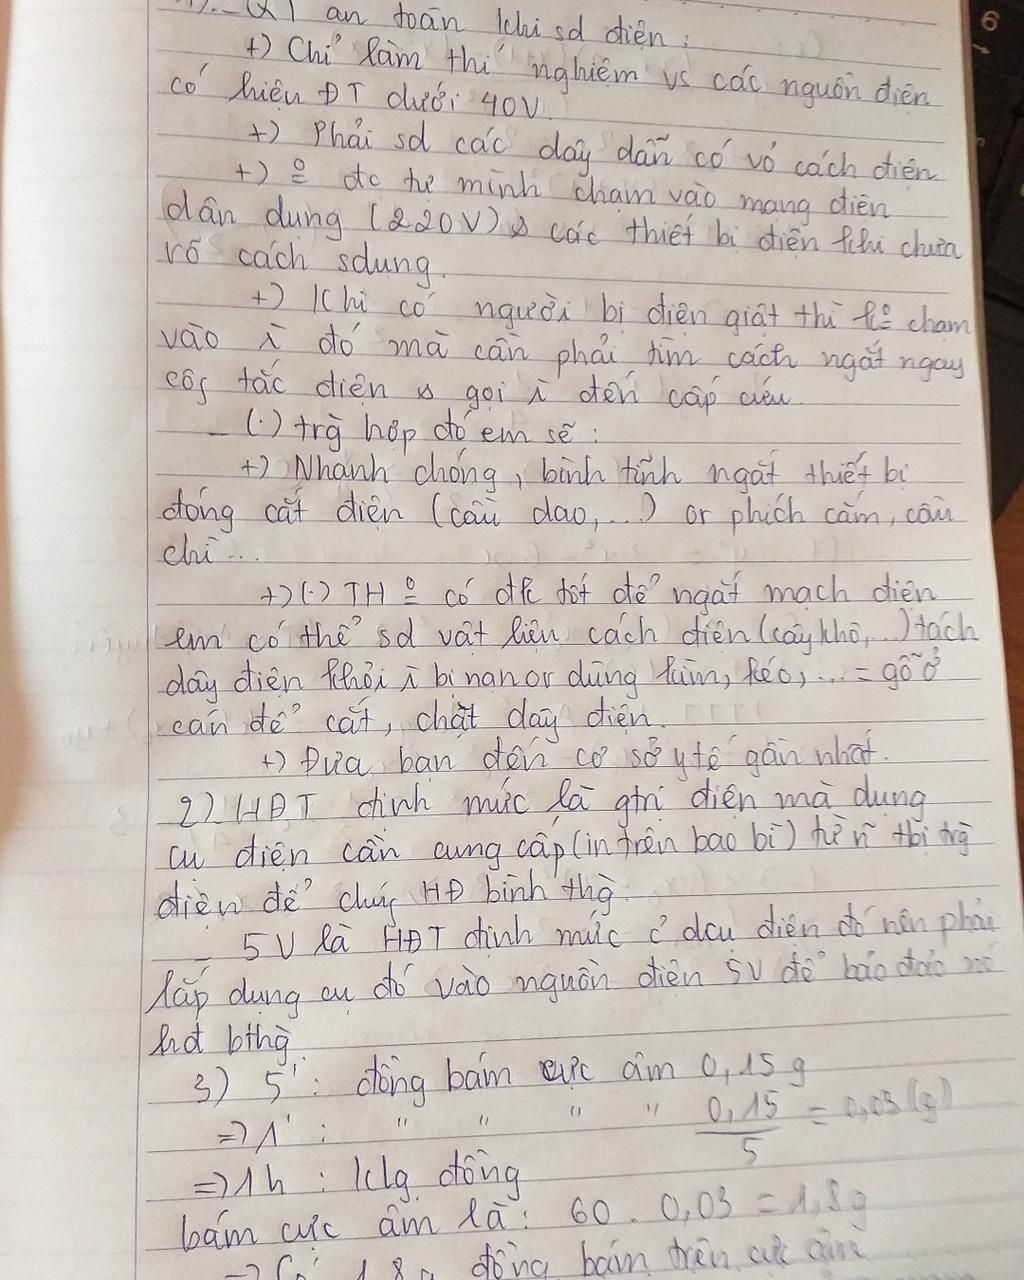 1). - QT an toàn khi sd điện:
+) Chỉ làm thí nghiệm vs các nguồn điện
có hiệu ĐT dưới 40V.
+) Phải sd các dây dẫn có vỏ cách điện
+) o đc tự mình chạm vào mạng điện
dân dụng (220V) & các thiết bị điện khi chưa
rõ cách sdụng.
+) Khi có người bị điện giật thì ko chạm
vào ì đó mà cần phải tìm cách ngắt ngay
côg tắc điện & gọi ì đến cấp cứu.
- (.) trg hợp đó em sẽ:
+) Nhanh chóng, bình tĩnh ngắt thiết bị
đóng cắt điện (cầu dao,...) or phích cắm, cầu
chì...
+) (.) TH o có đk tốt để ngắt mạch điện
em có thể sd vật liệu cách điện (cây khô,...) tách
dây điện khỏi ì bị nạn or dùng kìm, kéo,... = gỗ ở
cán để cắt, chặt dây điện.
+) Đưa bạn đến cơ sở y tế gần nhất.
2) HĐT định mức là gtrị điện mà dụng
cụ điện cần cung cấp (in trên bao bì) từ n~ tbị trg
điện để chúg HĐ bình thg.
- 5V là HĐT định mức c' dcụ điện đó nên phải
lắp dụng cụ đó vào nguồn điện 5V để bảo đảo nó
hđ bthg
3) 5': đồng bám cực âm 0,15 g
=> 1' : " " " " 0,15/5 = 0,03 (g)
=> 1h : Klg đồng
bám cực âm là: 60 . 0,03 = 1,8g
=> Có 1,8g đồng bám trên cực âm